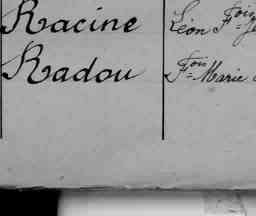 Racine Léon F.ois
Radou F.ois Marie